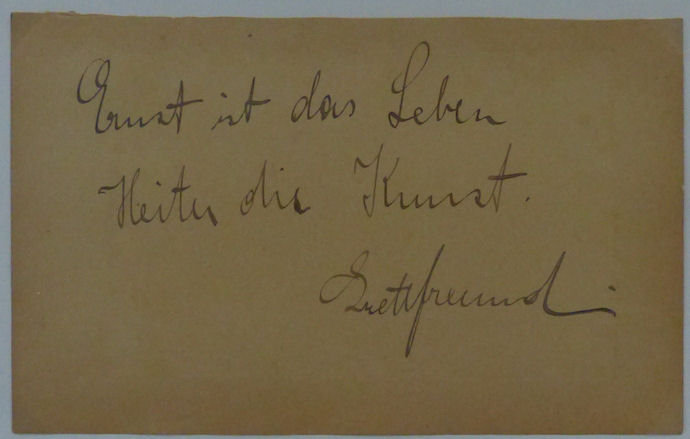 Ernst ist das Leben
Heiter die Kunst.